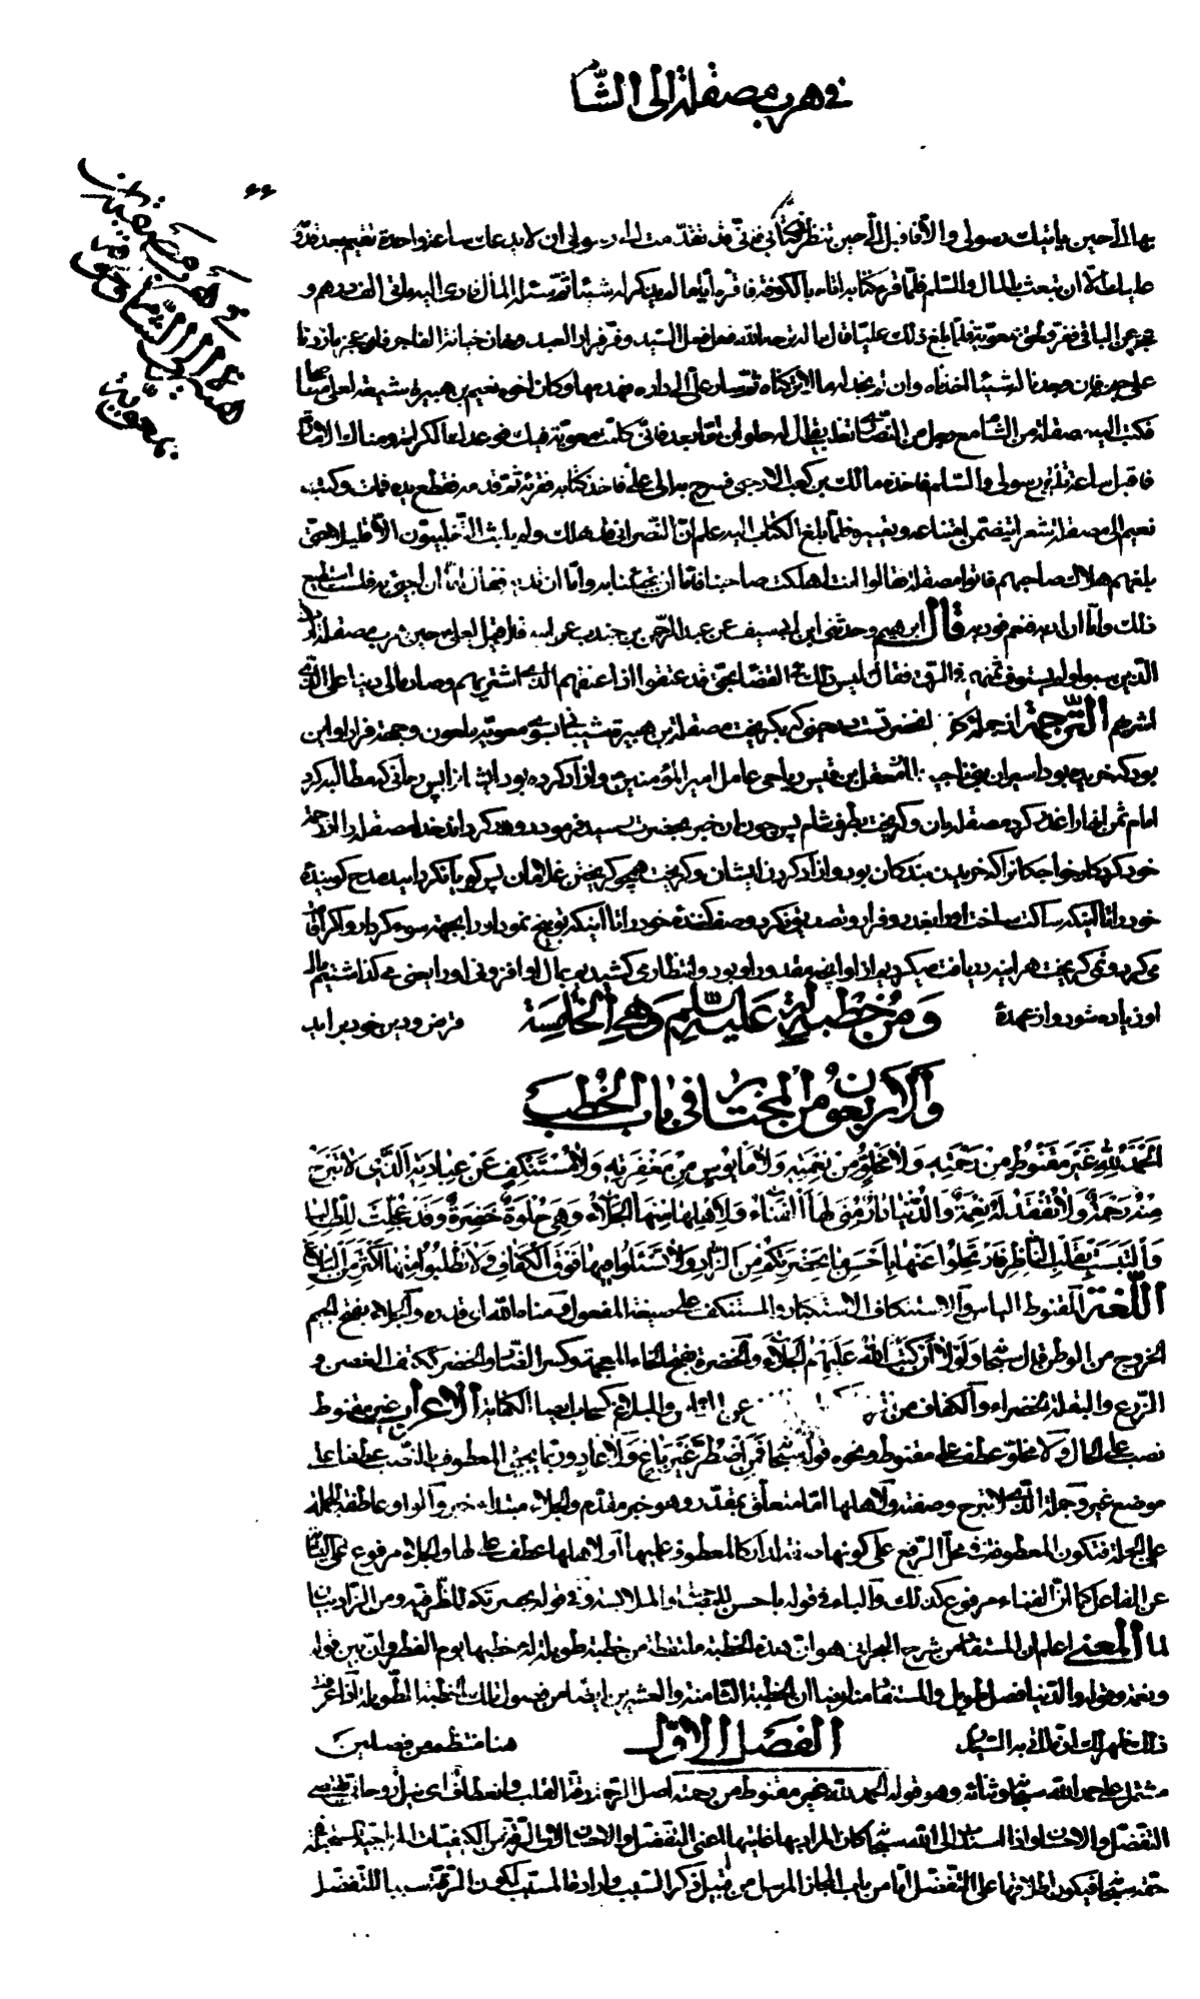 في هرب مصقلة الى الشام
۶۶
في هرب مصقلة بن
هبيرة الى الشام
بمعوية
بها الى حين ياتيك رسولى والا فاقبل الى حين تنظر في كتابي فاني قد تقدمت الى رسولى ان لا يدعك ساعة واحدة تقيم بعد قدومه
عليك الا ان تبعث بالمال والسلام فلما قرء كتابه اتاه بالكوفة فاقره اياما لم يذكر له شيئا ثم سئله المال فادى اليه مأتى الف درهم و
عجز عن الباقى ففر ولحق بمعوية فلما بلغ ذلك عليا قال ماله ترحه الله فعل فعل السيد وفر فرار العبد وخان خيانة الفاجر فلو عجز ما زدنا
على حبسه فان وجدنا له شيئا اخذناه وان لم نجد له مالا تركناه ثم سار على الى داره فهدمها وكان اخوه نعيم بن هبيرة شيعة لعلى مناصحا
فكتب اليه مصقلة من الشام مع رجل من النصارى تغلب يقال له حلوان اما بعد فاني كلمت معوية فيك فوعدك الكرامة ومناك الامارة
فاقبل ساعة تلقى رسولى والسلام فاخذه مالك بن كعب الارحبى فسرح به الى على فاخذ كتابه فقرئه ثم قدمه فقطع يده فمات وكتب
نعيم الى مصقلة شعرا يتضمن امتناعه وتعييره فلما بلغ الكتاب اليه علم ان النصرانى قد هلك ولم يلبث التغلبيون الا قليلا حتى
بلغهم هلاك صاحبهم فاتوا مصقلة فقالوا انت اهلكت صاحبنا فاما ان تجيئنا به واما ان تديه فقال اما ان اجيئ به فلست استطيع
ذلك واما ان اديه فنعم فوديه قال ابرهيم وحدثني ابن ابي سيف عن عبد الرحمن بن جندب عن ابيه قال قيل لعلى حين هرب مصقلة اردد
الذين سبوا ولم يستوف ثمنهم في الرق فقال ليس ذلك في القضاء بحق قد عتقوا اذ اعتقهم الذى اشتريهم وصار مالى دينا على الذى
اشريهم الترجمة از جمله كلام انحضرتست در حيني كه بگريخت مصقلة بن هبيرة شيباني بسوى معويه ملعون وجهة فرار او اين
بود كه خريده بود اسيران بني ناجيه را از معقل بن قيس رياحى عامل امير المؤمنين و ازاد كرده بود ايشانرا پس زمانى كه مطالبه كرد
امام ثمن انها را غدر كرد مصقله بان وگريخت بطرف شام پس چون ان خبر بحضرت رسيد فرمود دور گرداند خدا مصقله را از رحمة
خود كرد كار خواجگانرا كه خريدن بندگان بود و ازاد كردن ايشان وگريخت همچو گريختن غلامان پس گويا نگردانيد مدح گوينده
خود را تا اينكه ساكت ساخت او را بغدر و فرار و تصديق نكرد وصف كننده خود را تا اينكه توبيخ نمود او را بجهة سوء كردار و اگر اقامة
مى كرد ونمى گريخت هراينه دريافت ميكرديم از او انچه مقدور او بود وانتظار مى كشيديم بمال او افزونى او را يعنى مى گذاشتيم مال
او زياده شود و از عهدة
ومن خطبة له عليه السلم وهى الخامسة
قرض ودين خود برايد
والاربعون من المختار في باب الخطب
الحمد لله غير مقنوط من رحمته ولا مخلو من نعمته ولا مأيوس من مغفرته ولا مستنكف عن عبادته الذى لا تبرح
منه رحمة ولا تفقد له نعمة والدنيا دار منى لها الفناء ولاهلها منها الجلاء وهى حلوة خضرة وقد عجلت للطالب
والتبست بقلب الناظر فارتحلوا عنها باحسن ما بحضرتكم من الزاد ولا تسئلوا فيها فوق الكفاف ولا تطلبوا منها اكثر من البلاغ
اللغة القنوط الياس والاستنكاف الاستكبار والمستنكف على صيغة المفعول ومناه الله اى قدره والجلاء بفتح الجيم
الخروج من الوطن قال سبحانه ولولا ان كتب الله عليهم الجلاء والخضرة بفتح الخاء المعجمة وكسر الضاد والخضر ككتف الغصن و
الزرع والبقلة الخضراء والكفاف من عن الناس والبلاغ كسحاب ايضا الكفاية الاعراب غير مقنوط
نصب على الحال ولا مخلو عطف على مقنوط ونحوه قوله سبحانه فمن اضطر غير باغ ولا عاد وربما يجيئ المعطوف بالنصب عطفا على
موضع غير وجملة الذى لا تبرح وصفته ولاهلها اما متعلق بمقدر وهو خبر مقدم والجلاء مبتداء خبر والواو عاطفة للجملة
على الجملة فتكون المعطوفة في محل الرفع على كونها صفة لدار كالمعطوفة عليها او لاهلها عطف على لها والجلاء مرفوع على النيابة
عن الفاعل كما ان الفناء مرفوع كذلك والباء في قوله باحسن للمصاحبة او الملابسة وفي قوله بحضرتكم للظرفية ومن الزاد بيان
لما المعنى اعلم ان المستفاد من شرح البحرانى هو ان هذه الخطبة ملتقطة من خطبة طويلة له خطبها يوم الفطر وان بين قوله
ونعمة وقوله والدنيا فصل طويل والمستفاد منه ايضا ان الخطبة الثامنة والعشرين ايضا من فصول تلك الخطبة الطويلة اذا عرفت
ذلك
الفصل الاول
هنا منتظمه من فصلين
مشتمل على حمد الله سبحانه وثنائه وهو قوله الحمد لله غير مقنوط من رحمته اصل الرحمة رقة القلب وانعطاف اى ميل روحانى
التفضل والاحسان واذا اسندت الى الله سبحانه كان المراد بها غايتها اعنى التفضل والاحسان لان الرقة من الكيفيات المزاجية المستحيلة في
حقه سبحانه فيكون اطلاقها على التفضل اما من باب المجاز المرسل من قبيل ذكر السبب وارادة المسبب لكون الرقة سببا للتفضل